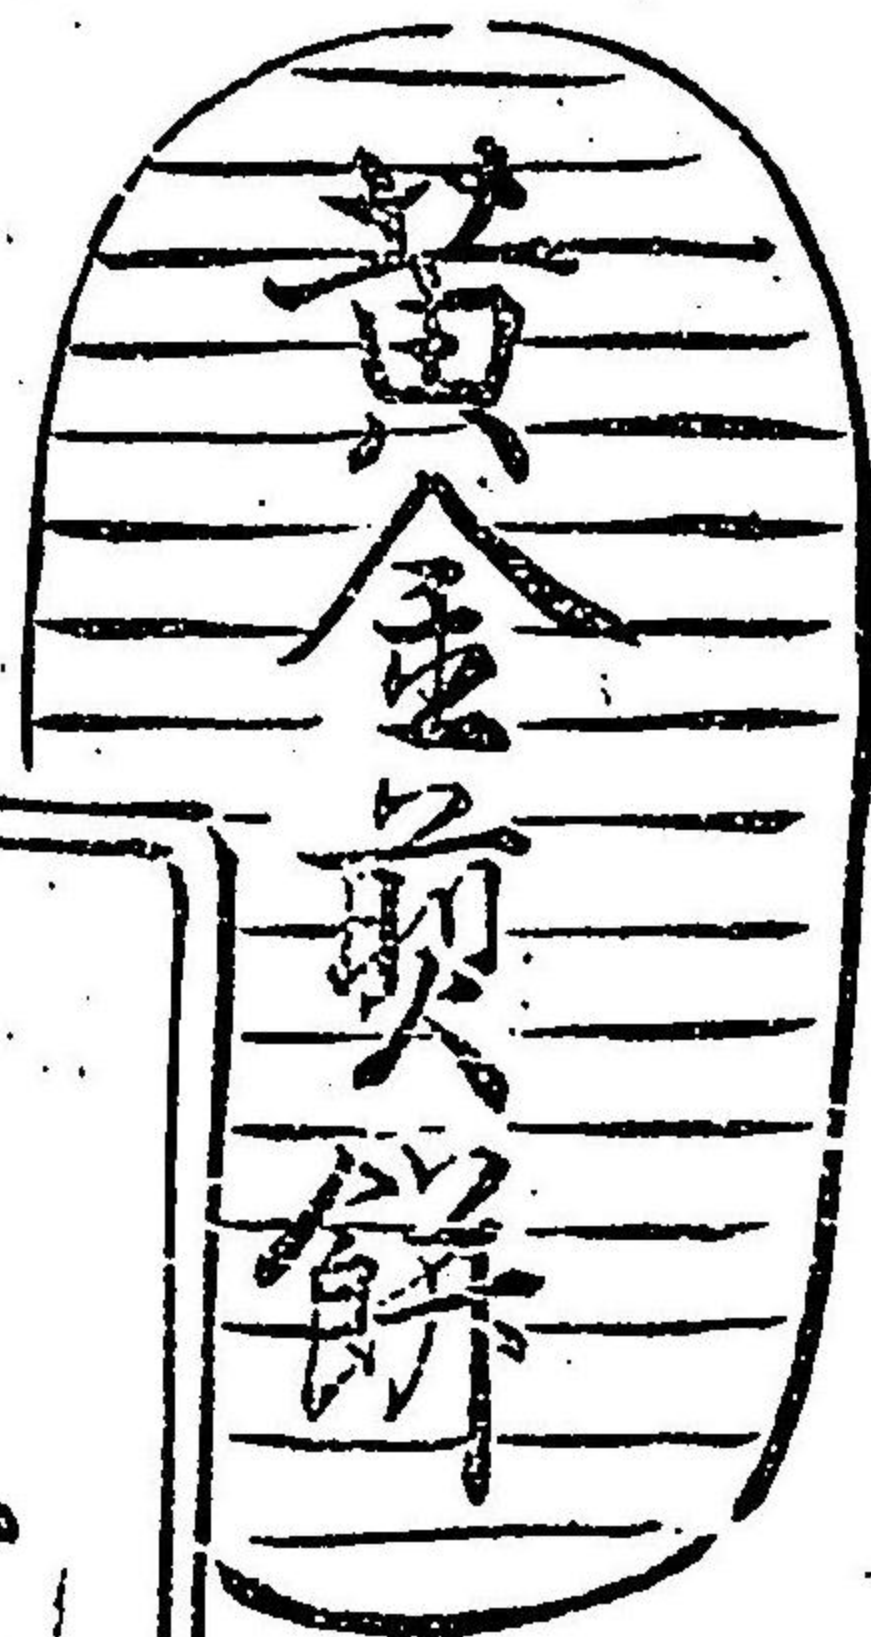 黄金煎餅